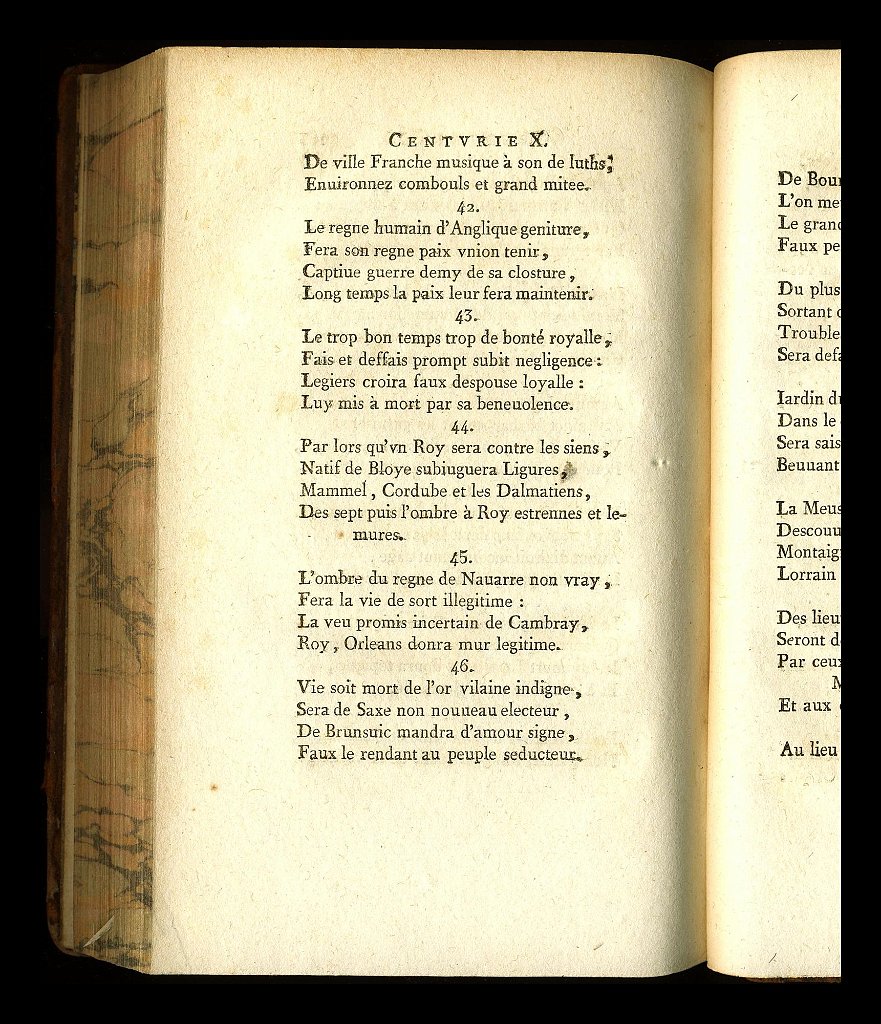 CENTVRIE X.
De ville Franche musique à son de luths;
Enuironnez combouls et grand mitee.
42.
Le regne humain d'Anglique geniture,
Fera son regne paix vnion tenir,
Captiue guerre demy de sa closture,
Long temps la paix leur fera maintenir.
43.
Le trop bon temps trop de bonté royalle,
Fais et deffais prompt subit negligence:
Legiers croira faux despouse loyalle :
Luy mis à mort par sa beneuolence.
44.
Par lors qu'vn Roy sera contre les siens,
Natif de Bloye subiuguera Ligures,
Mammel, Cordube et les Dalmatiens,
Des sept puis l'ombre à Roy estrennes et le-
mures.
45.
L'ombre du regne de Nauarre non vray,
Fera la vie de sort illegitime :
La veu promis incertain de Cambray,
Roy, Orleans donra mur legitime.
46.
Vie soit mort de l'or vilaine indigne,
Sera de Saxe non nouueau electeur,
De Brunsuic mandra d'amour signe,
Faux le rendant au peuple seducteur.
De
L'on
Le
Faux
Du plus
Sortant
Trouble
Sera
Iardin
Dans le
Sera
Beuuant
La
Lorrain
Des
Seront
Par
Et aux
Au lieu